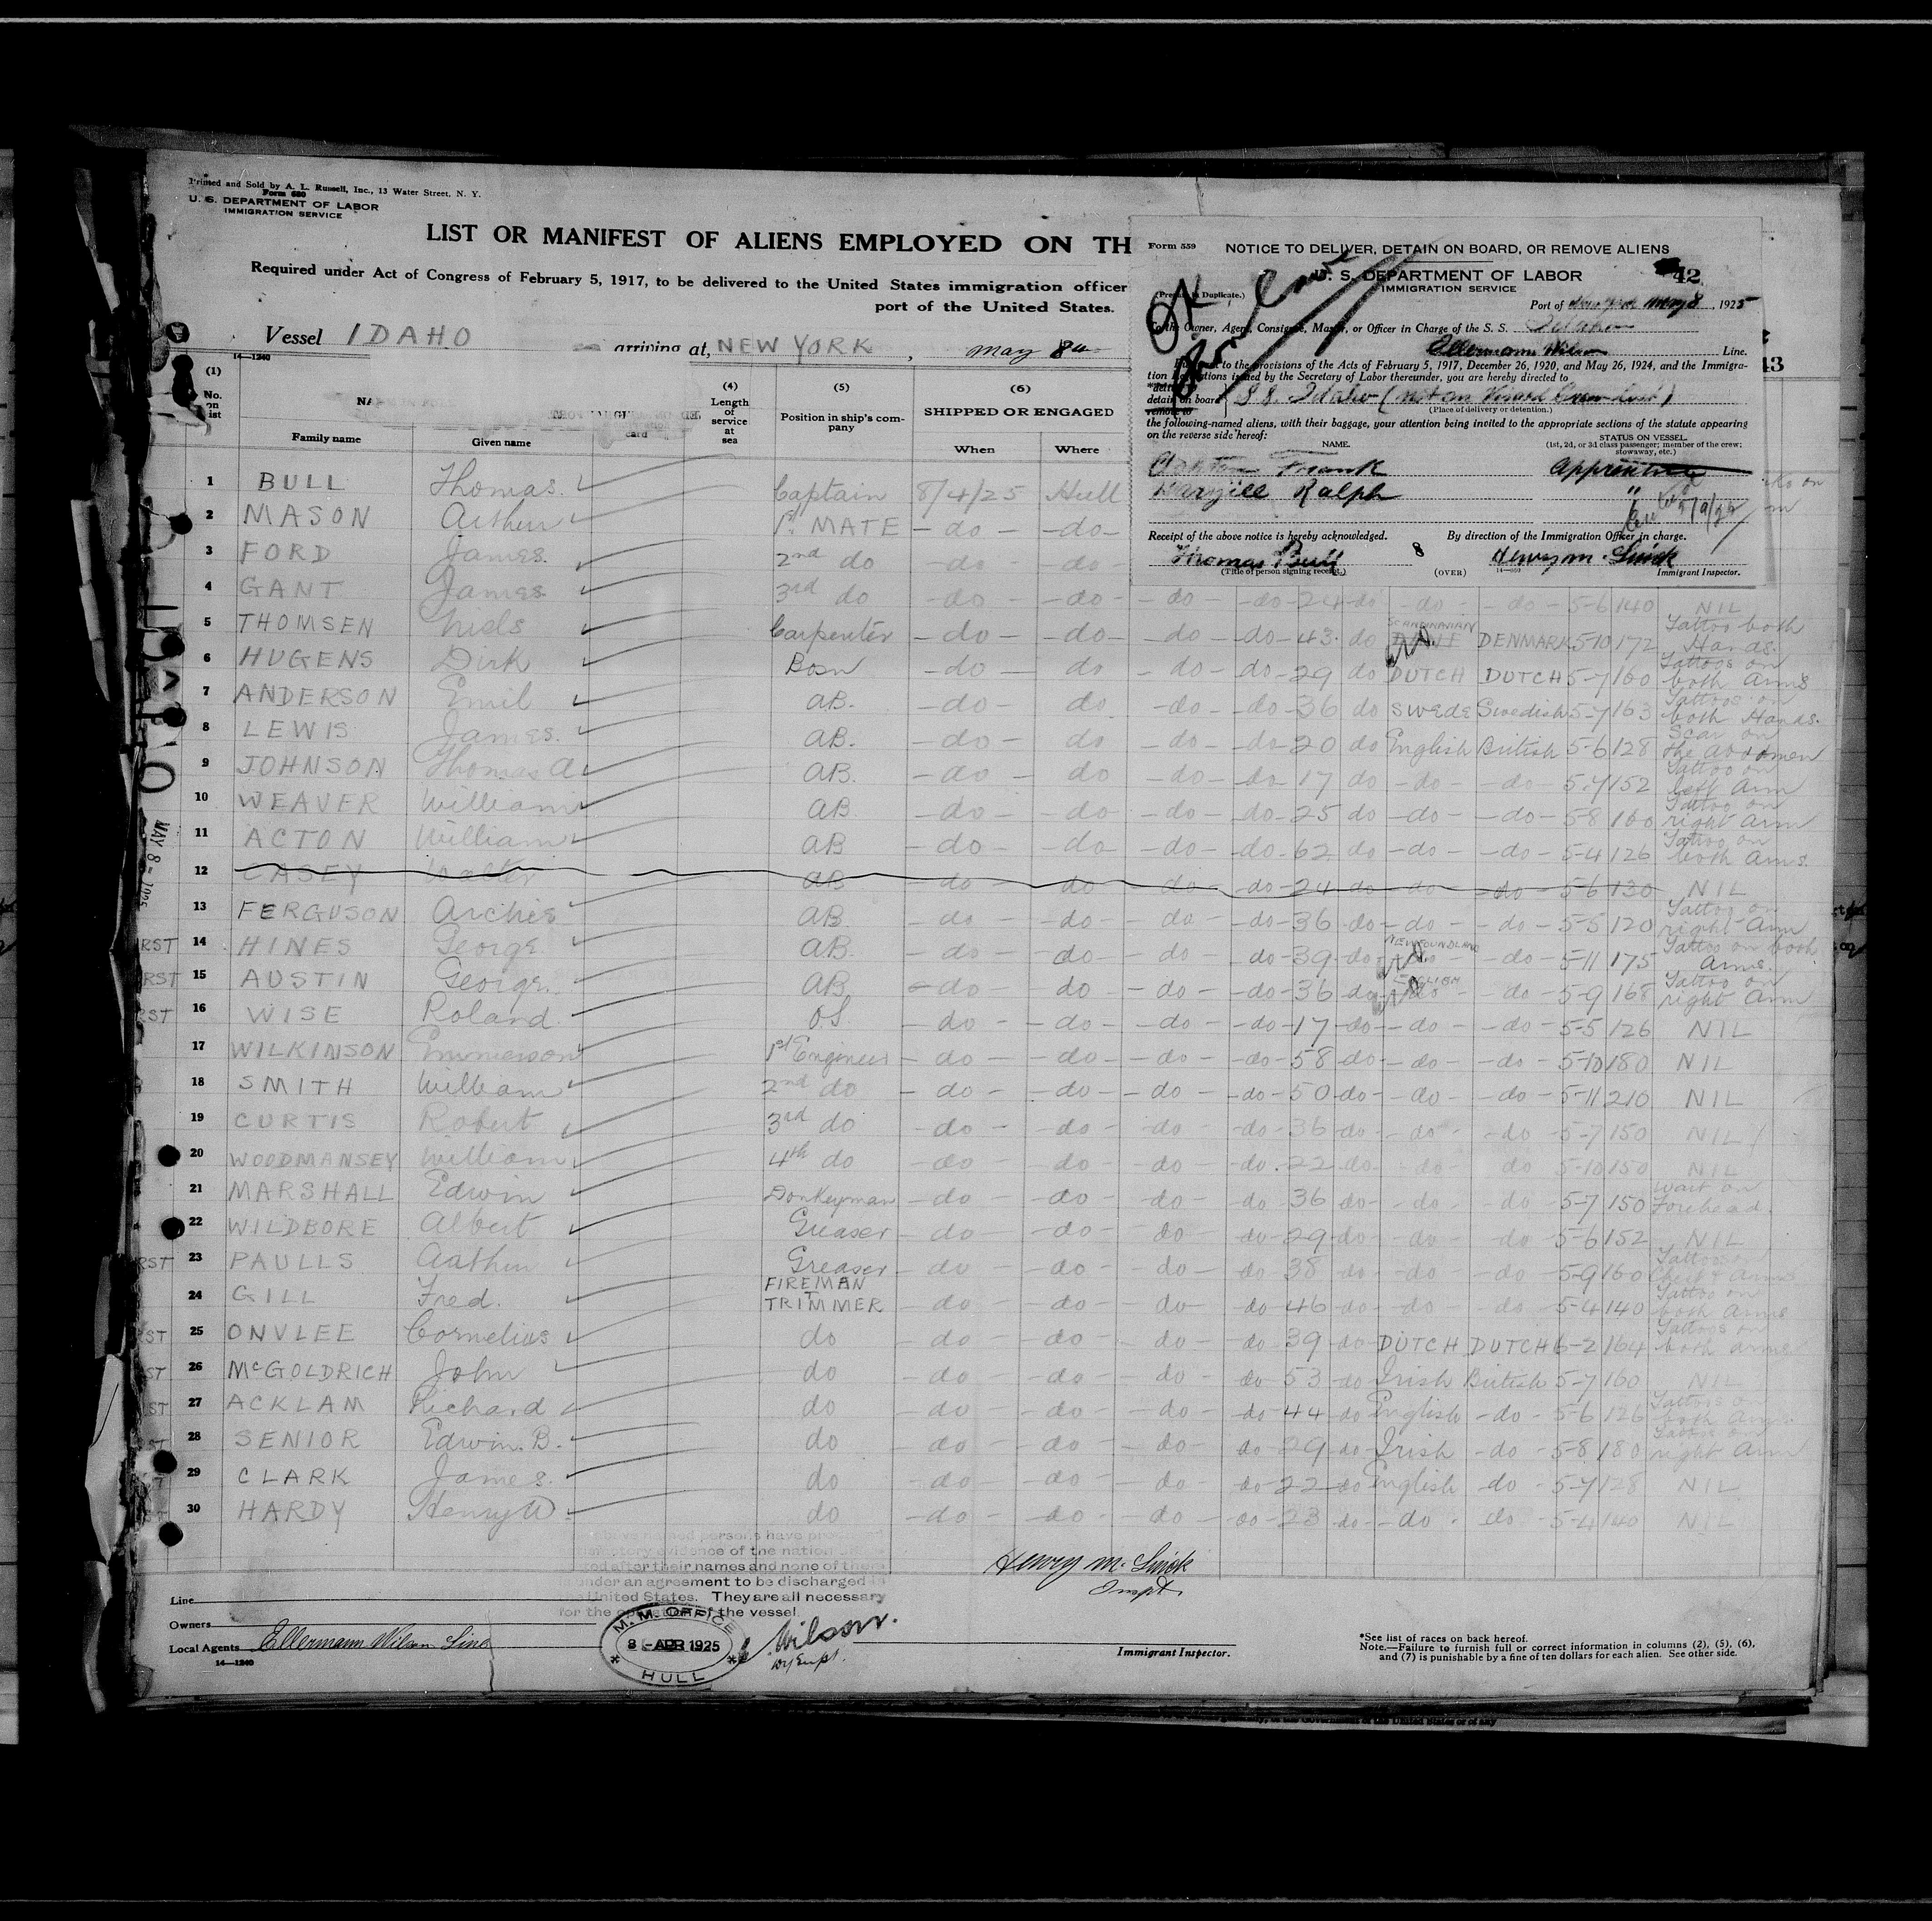 Printed and Sold by A. L. Russell, Inc., 13 Water Street, N. Y.
Form 680
U. S. DEPARTMENT OF LABOR
IMMIGRATION SERVICE
LIST OR MANIFEST OF ALIENS EMPLOYED ON TH
Required under Act of Congress of February 5, 1917, to be delivered to the United States immigration officer
port of the United States.
Vessel IDAHO arriving at, NEW YORK, May 8th
14—1240
Form 559 NOTICE TO DELIVER, DETAIN ON BOARD, OR REMOVE ALIENS
U. S. DEPARTMENT OF LABOR 42
IMMIGRATION SERVICE
OK
Port of New York May 8, 1925
To the Owner, Agent, Consignee, Master, or Officer in Charge of the S. S. Idaho
Ellermans Wilson Line.
Pursuant to the provisions of the Acts of February 5, 1917, December 26, 1920, and May 26, 1924, and the Immigra-
tion Regulations issued by the Secretary of Labor thereunder, you are hereby directed to
detain on board S S. Idaho (not on Visaed Crew List)
remove to (Place of delivery or detention.)
the following-named aliens, with their baggage, your attention being invited to the appropriate sections of the statute appearing
on the reverse side hereof:
NAME. STATUS ON VESSEL.
(1st, 2d, or 3d class passenger; member of the crew;
stowaway, etc.)
Frank Apprentice
Ralph "
5/9/25
Receipt of the above notice is hereby acknowledged. By direction of the Immigration Officer in charge.
Thomas Bull 8 Henry M.
(Title of person signing receipt.) (OVER) Immigrant Inspector.
43
(1) No. on list
Family name Given name
(4) Length of service at sea
(5) Position in ship's company
(6) SHIPPED OR ENGAGED
When Where
1 BULL Thomas Captain 8/4/25 Hull
2 MASON Arthur 1st MATE -do- -do-
3 FORD James 2nd do -do- -do-
4 GANT James 3rd do -do- -do- -do- -do- 24 do -do- -do- 5-6 140 NIL
5 THOMSEN Niels Carpenter -do- -do- -do- -do- 43 do SCANDINAVIAN DENMARK 5-10 172 Tattoo both Hands.
6 HUGENS Dirk Bosn -do- do -do- -do- 29 do DUTCH DUTCH 5-7 160 Tattoos on both Arms
7 ANDERSON Emil AB. -do- do -do- -do- 36 do SWEDE Swedish 5-7 163 Tattoos on both Hands.
8 LEWIS James. AB. -do- do -do- -do- 20 do English British 5-6 128 Scar on the abdomen
9 JOHNSON Thomas A AB. -do- do -do- -do- 17 do -do- -do- 5-7 152 Tattoo on left Arm
10 WEAVER William AB -do- do -do- -do- 25 do -do- -do- 5-8 160 Tattoo on right Arm
11 ACTON William AB -do- -do- -do- -do- 62 do -do- -do- 5-4 126 Tattoo on both Arms.
12 CASEY Walter AB -do- do do -do- 24 do -do- -do 5-6 130 NIL
13 FERGUSON Archie AB -do- -do- -do- -do- 36 do -do- -do- 5-5 120 Tattoo on right Arm
RST 14 HINES George AB. -do- -do- -do- do 39 do NEWFOUNDLAND -do- 5-11 175 Tattoo on both Arms.
RST 15 AUSTIN George. AB -do- do -do- -do- 36 do ENGLISH -do- 5-9 168 Tattoo on right Arm
RST 16 WISE Roland OS -do- -do- -do- -do- 17 do -do- -do- 5-5 126 NIL
17 WILKINSON Emmerson 1st Engineer -do- -do- -do- -do- 58 do -do- -do- 5-10 180 NIL
18 SMITH William 2nd do -do- -do- -do- -do- 50 do -do- -do- 5-11 210 NIL
19 CURTIS Robert 3rd do -do- -do- -do- -do- 36 do -do- -do 5-7 150 NIL
20 WOODMANSEY William 4th do -do- -do- -do- -do. 22 do -do- do 5-10 150 NIL
21 MARSHALL Edwin Donkeyman -do- -do- -do- do 36 do -do- -do 5-7 150 Wart on Forehead.
22 WILDBORE Albert Greaser -do- -do- do- do 29 do -do- -do 5-6 152 NIL
RST 23 PAULLS Arthur Greaser -do- -do- -do- do 38 do -do- -do 5-9 160 Tattoos on Chest & Arms
24 GILL Fred. FIREMAN TRIMMER -do- -do- do- do 46 do -do- -do- 5-4 140 Tattoo on both Arms
RST 25 ONVLEE Cornelius do -do- -do- -do- do 39 do DUTCH DUTCH 6-2 164 Tattoos on both arms
ST 26 McGOLDRICH John do -do- -do- -do- do 53 do Irish British 5-7 160 NIL
ST 27 ACKLAM Richard do -do- -do- -do- do 44 do English -do- 5-6 126 Tattoos on both Arms.
ST 28 SENIOR Edwin. B. do -do- -do- -do- do 29 do Irish -do- 5-8 180 Tattoo on right Arm
29 CLARK James. do -do- -do- -do- do 22 do English -do 5-7 128 NIL
30 HARDY Henry W. do -do- -do- -do- do 23 do -do- do- 5-4 140 NIL
MAY 8 - 1925
named persons have
evidence of the nation
ted after their names and none of them
under an agreement to be discharged in
United States. They are all necessary
for the operation of the vessel.
Henry M.
Inspt.
Line
Owners
Local Agents Ellermans Wilson Line
14—1240
M. M. OFFICE
8 APR 1925
HULL
Wilson.
Immigrant Inspector.
*See list of races on back hereof.
Note.—Failure to furnish full or correct information in columns (2), (5), (6),
and (7) is punishable by a fine of ten dollars for each alien. See other side.